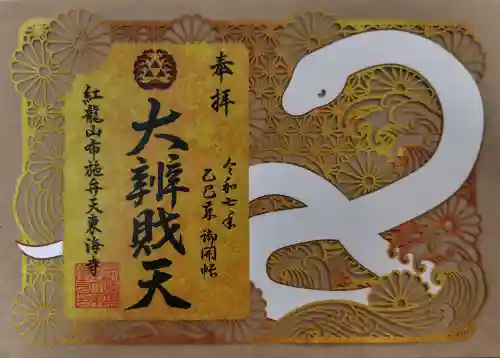 奉拝
令和七年
乙巳年 御開帖
大辨財天
紅龍山布施弁天東海寺